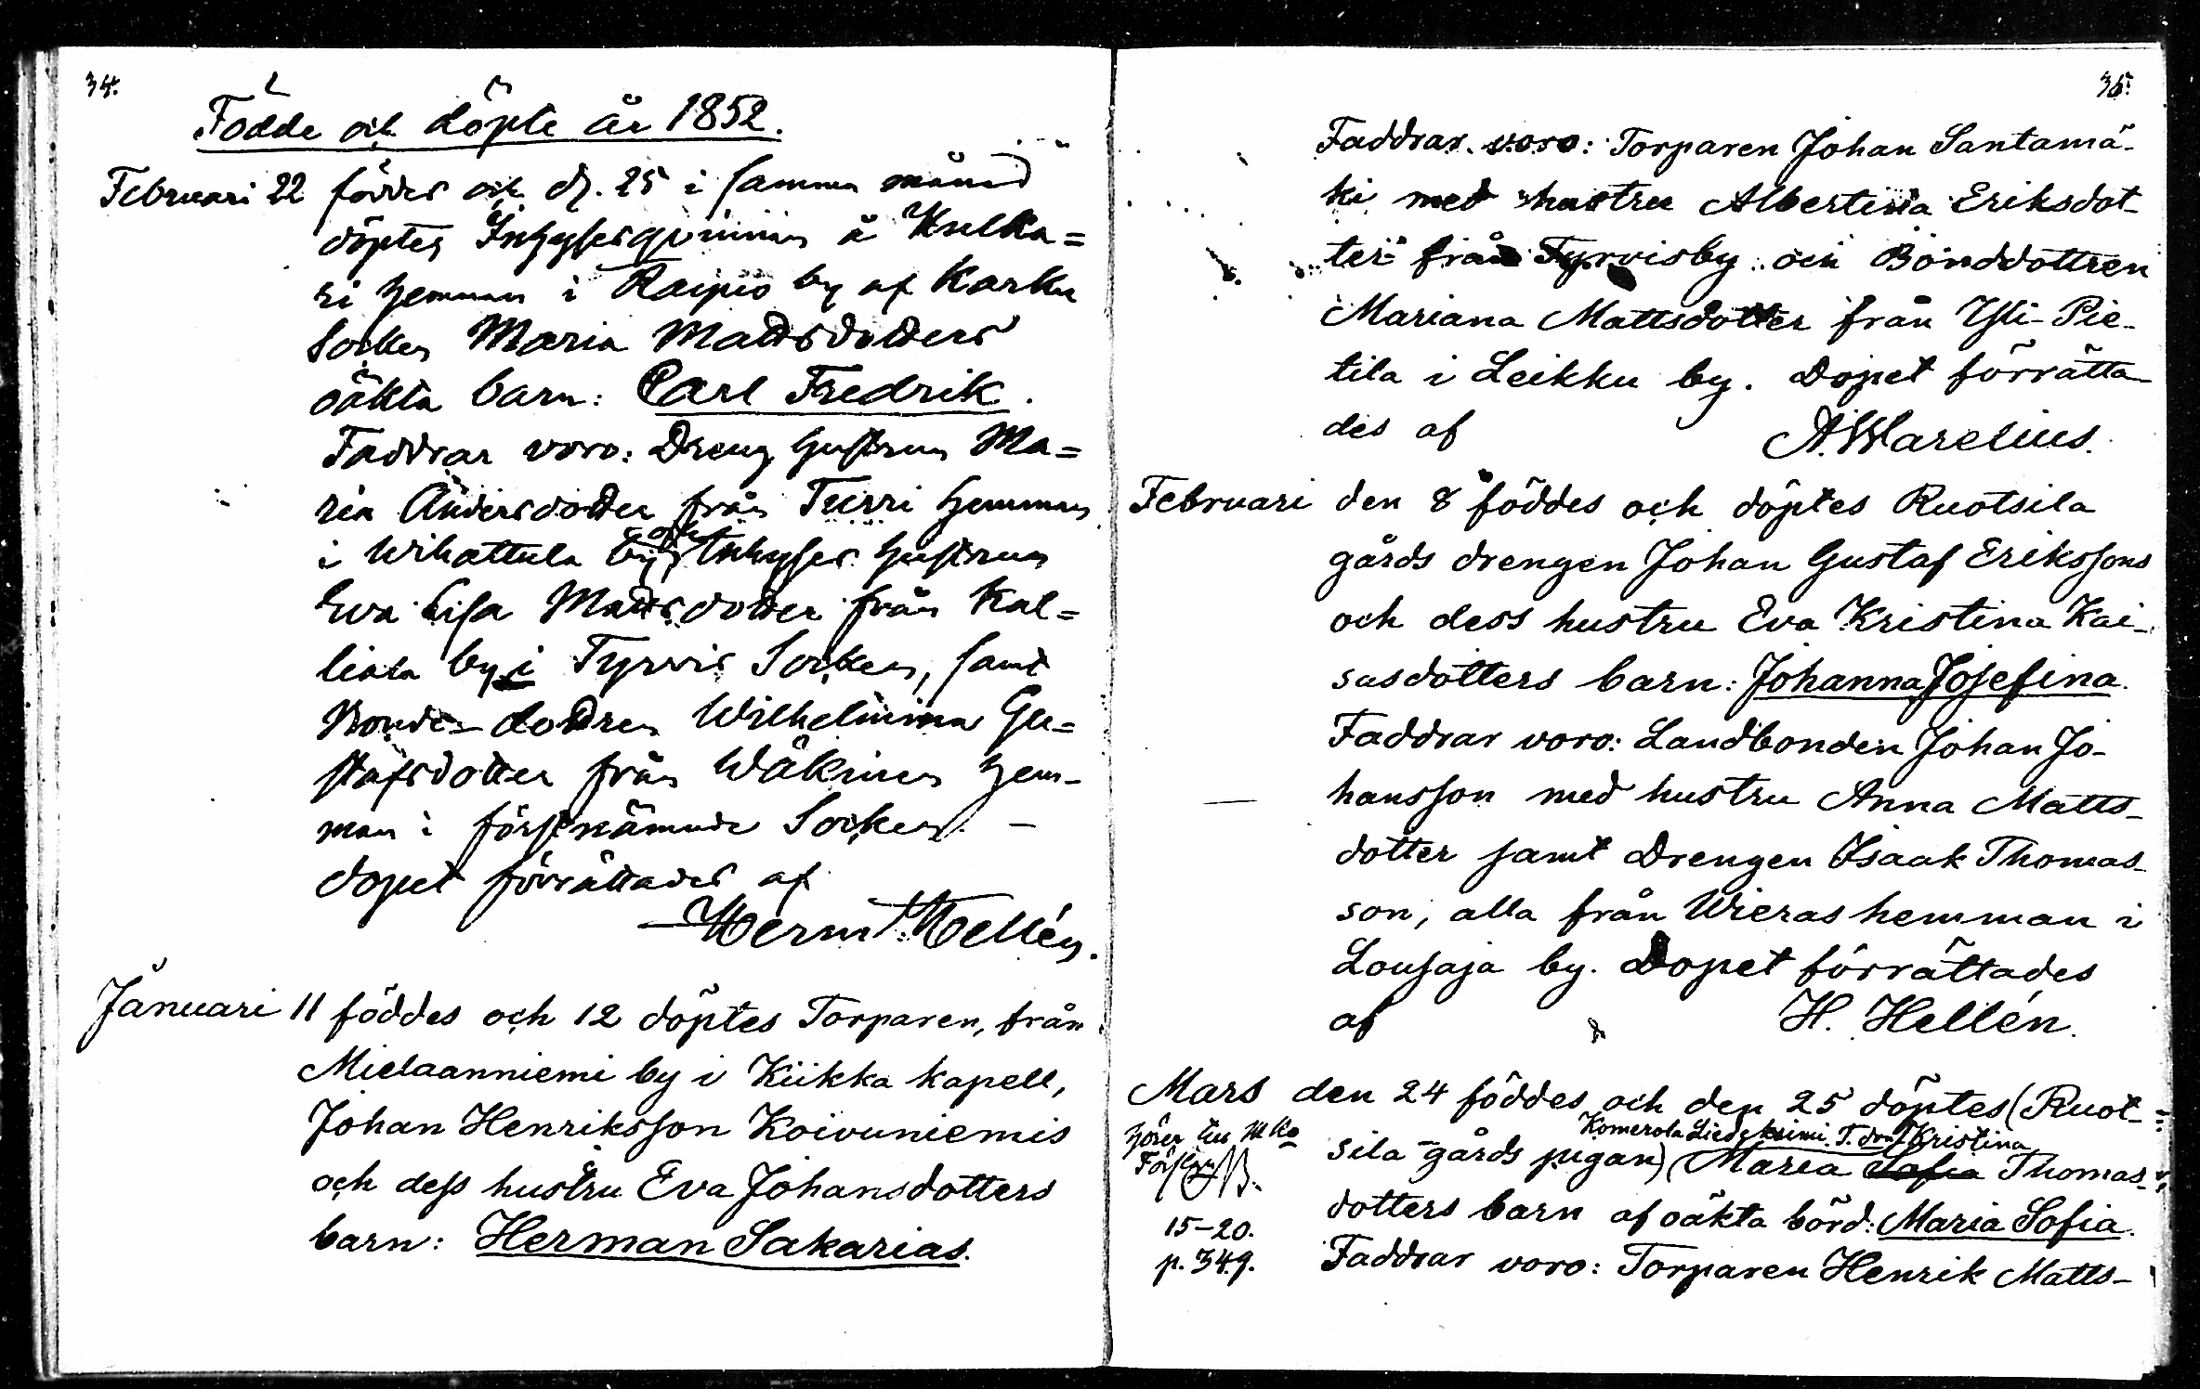 34.
Födde och döpte år 1852.
Februari 22 föddes och d. 25 i samma månad
döptes Inhysesqvinnan å Kulka=
ri hemman i Raipio by af Karku
Socken Maria Mattsdotters
oäkta barn: Carl Fredrik.
Faddrar voro: Dreng hustrun Ma=
ria Andersdotter från Turri hemman
i Wihattula by, och Inhyses hustrun
Eva Lisa Mattsdotter från Kal=
liala by i Tyrvis Socken, samt
Bonde-dottren Wilhelmina Gu=
stafsdotter från Wäkinen hem-
man i förstnämnde Socken. -
Dopet förrättades af
Herm. Hellén.
Januari 11 föddes och 12 döptes Torparen, från
Mielaanniemi by i Kiikka kapell,
Johan Henriksson Koivuniemis
och dess hustru Eva Johansdotters
barn: Herman Sakarias.
35.
Faddrar voro: Torparen Johan Santamä-
ki med hustru Albertina Eriksdot-
ter från Tyrvisby och Bonddottren
Mariana Mattsdotter från Yli-Pie-
tila i Leikku by. Dopet förrätta-
des af A. Warelius.
Februari den 8 föddes och döptes Ruotsila
gårds drengen Johan Gustaf Erikssons
och dess hustru Eva Kristina Kai-
sasdotters barn: Johanna Josefina.
Faddrar voro: Landbonden Johan Jo-
hansson med hustru Anna Matts-
dotter samt Drengen Isaak Thomas-
son, alla från Wieras hemman i
Lousaja by. Dopet förrättades
af H. Hellén.
Mars den 24 föddes och den 25 döptes (Ruot-
Komerola T. dra Kristina
hörer till
sila-gårds pigan) (Maria Sofia Thomas-
dotters barn af oäkta börd: Maria Sofia.
15-20.
p. 349.
Faddrar voro: Torparen Henrik Matts-